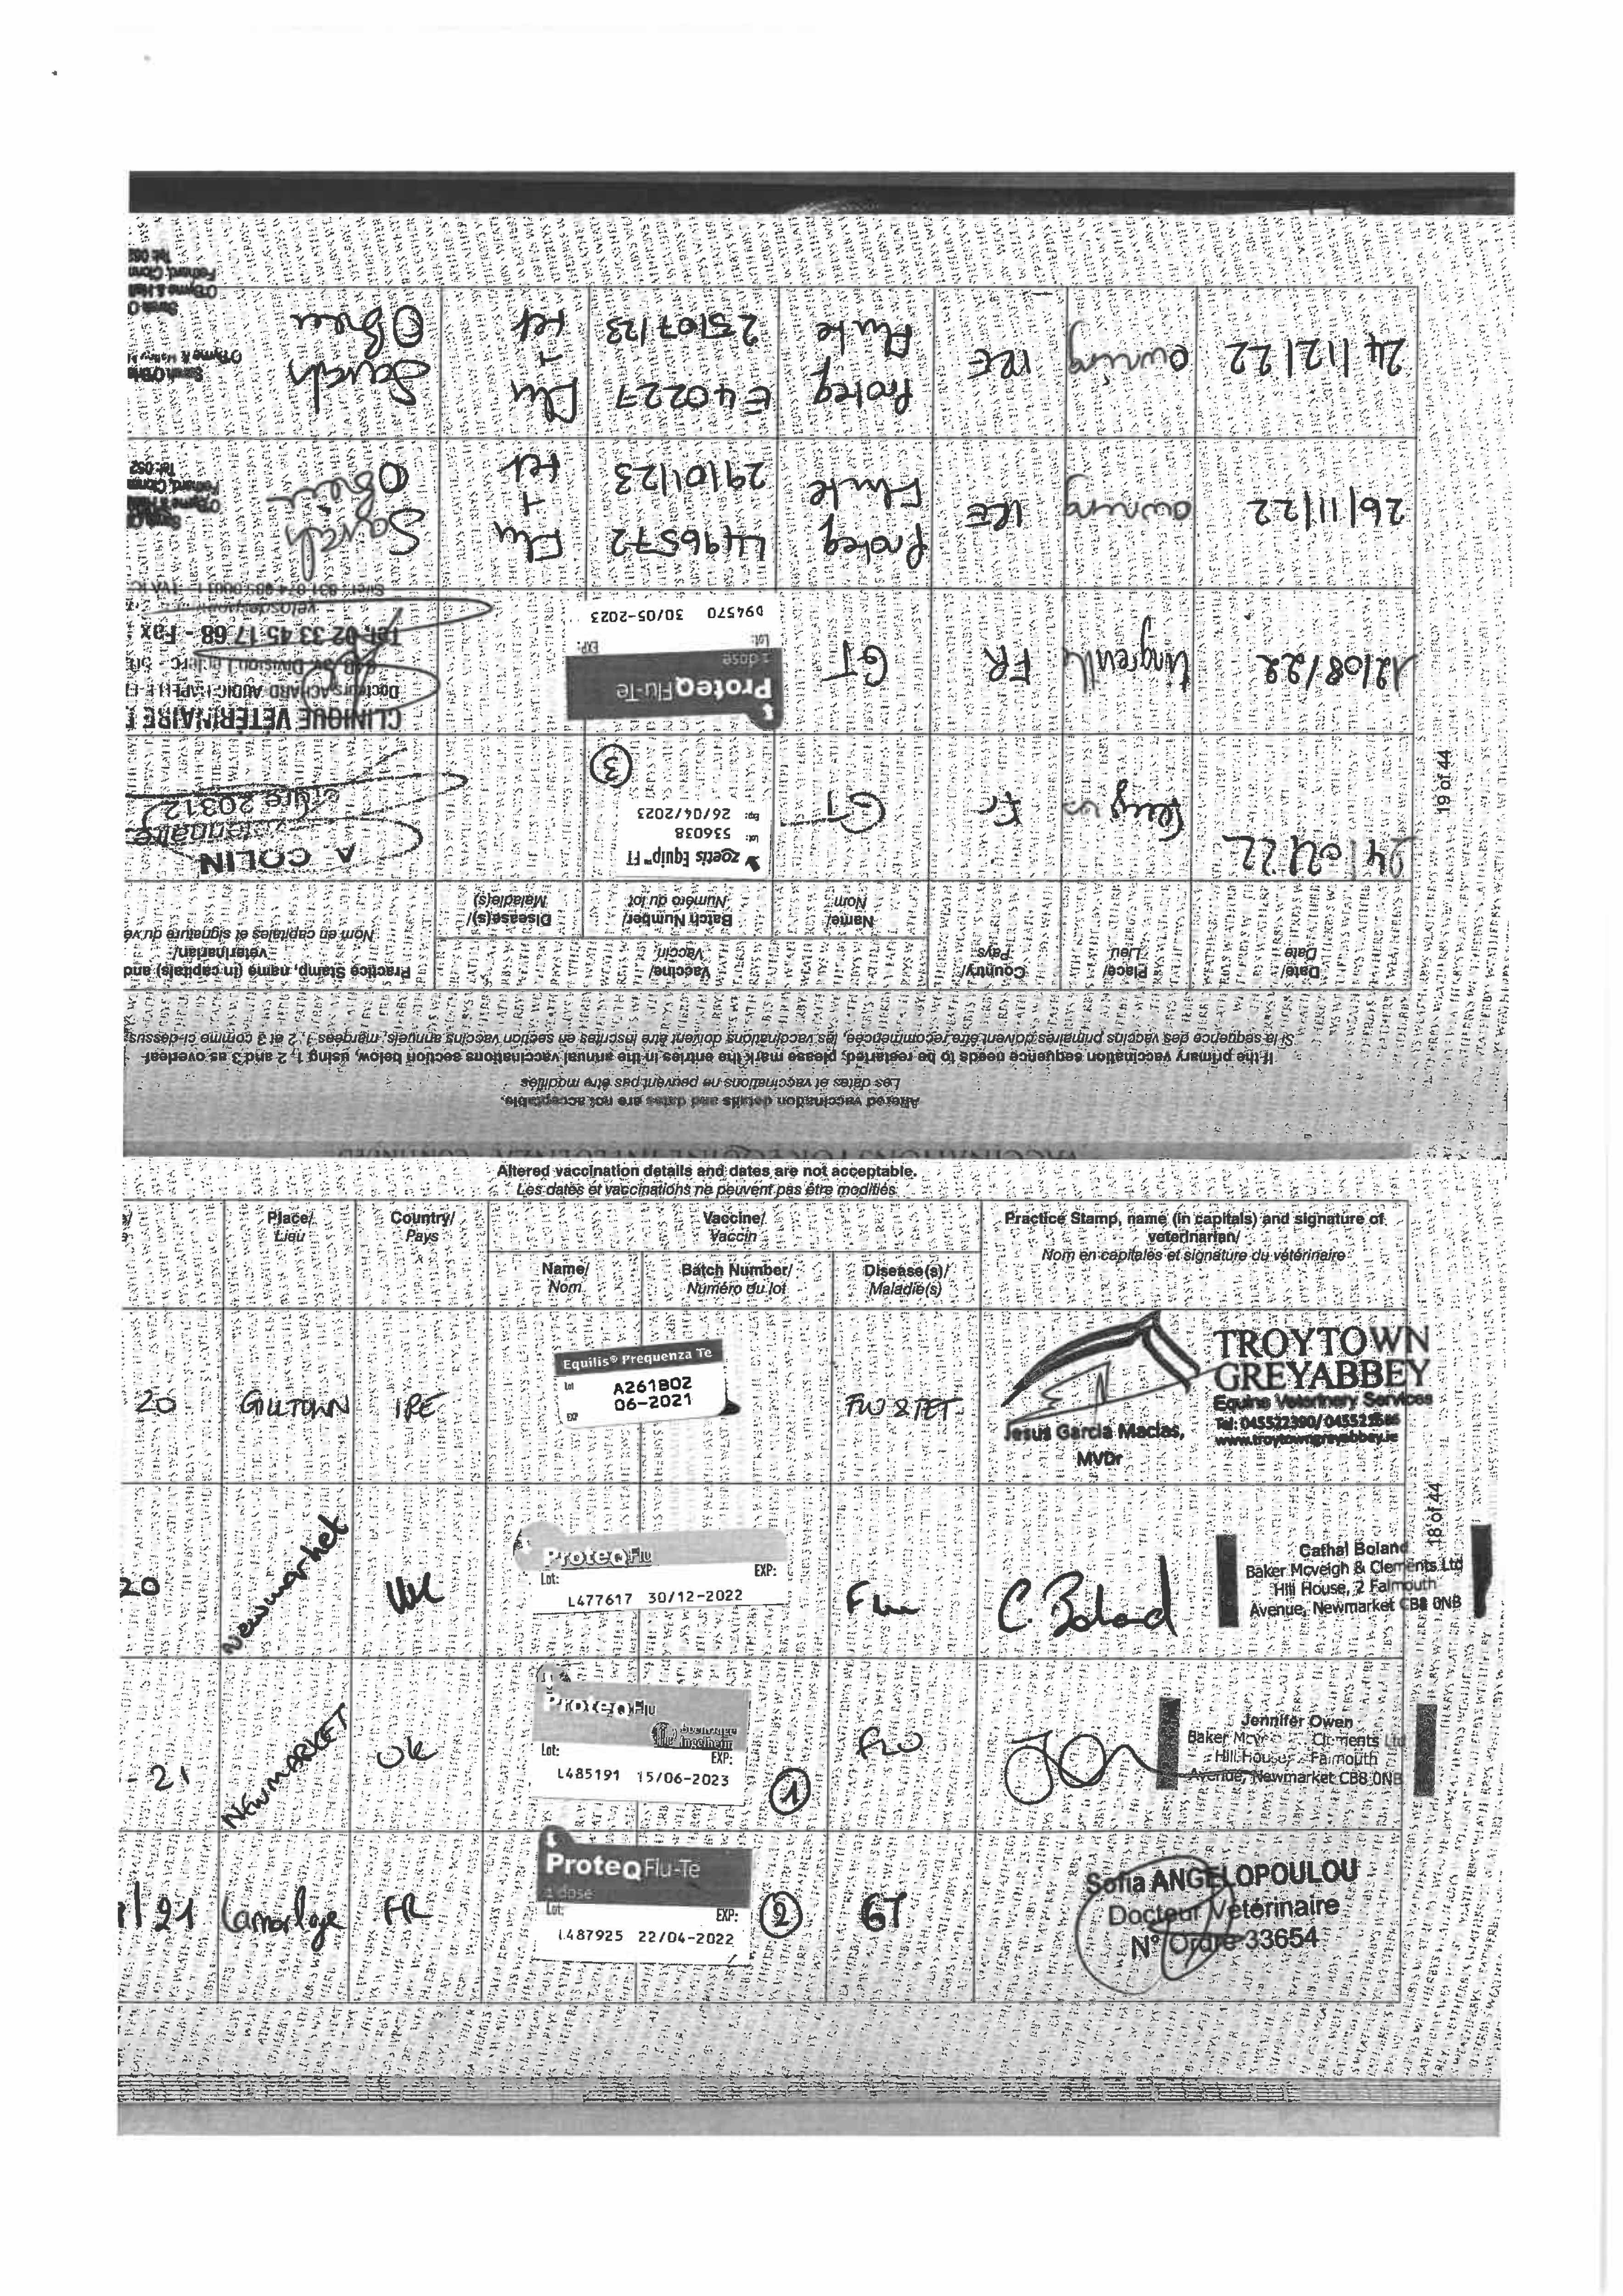 Altered vaccination details and dates are not acceptable.
Les dates et vaccinations ne peuvent pas être modifiés
Place/ Country/ Vaccine/ Practice Stamp, name (in capitals) and signature of
Lieu Pays Vaccin veterinarian/
Nom en capitales et signature du vétérinaire
Name/ Batch Number/ Disease(s)/
Nom Numéro du lot Maladie(s)
20 GILLTOWN IRE
Equilis® Prequenza Te
Lot A261B02
EXP 06-2021
FLU & TET
Jesus Garcia Macias,
MVDr
TROYTOWN
GREYABBEY
Equine Veterinary Services
www.troytowngreyabbey.ie
20 Newmarket UK
ProteqFlu
Lot: EXP:
L477617 30/12-2022
Flu
C. Boland
Cathal Boland
Baker Mcveigh & Clements Ltd
Hill House, 2 Falmouth
Avenue, Newmarket CB8 0NB
-21 NEWMARKET UK
ProteqFlu
Lot: EXP:
L485191 15/06-2023
1
FLU
Jennifer Owen
Baker Clements Ltd
Hill House, Falmouth
Avenue, Newmarket CB8 0NB
/21 FR
ProteqFlu-Te
1 dose
Lot: EXP:
L487925 22/04-2022
2
GT
Sofia ANGELOPOULOU
Docteur Vétérinaire
N° Ordre 33654
18 of 44
Altered vaccination details and dates are not acceptable.
Les dates et vaccinations ne peuvent pas être modifiés
If the primary vaccination sequence needs to be restarted; please mark the entries in the annual vaccinations section below, using 1, 2 and 3 as overleaf
Si la sequence des vaccins primaires doivent être recommencée, les vaccinations doivent être inscrites en section vaccins annuels, margées 1, 2 et 3 comme ci-dessus
Date/ Place/ Country/ Vaccine/ Practice Stamp, name (in capitals) and
Date Lieu Pays Vaccin veterinarian/
Name/ Batch Number/ Disease(s)/ Nom en capitales et signature du vé
Nom Numéro du lot Maladie(s)
Fr GT
zoetis Equip™ FT
Lot: 536038
Exp: 26/04/2023
3
A. COLIN
Ordre 20312
12/08/22 FR GT
ProteqFlu-Te
1 dose
Lot: EXP:
D94570 30/05-2023
CLINIQUE VÉTÉRINAIRE
Docteurs ACHARD AUDIC
Division Leclerc
Tél. 02 33 45 17 68 - Fax
26/11/22 Owning IRE Proteq Flu te L496572 29/01/23 Flu + tet Sarah O Brien
24/12/22 Owning IRE Proteq Flu te E40227 25/07/23 Flu + tet Sarah O Brien
19 of 44